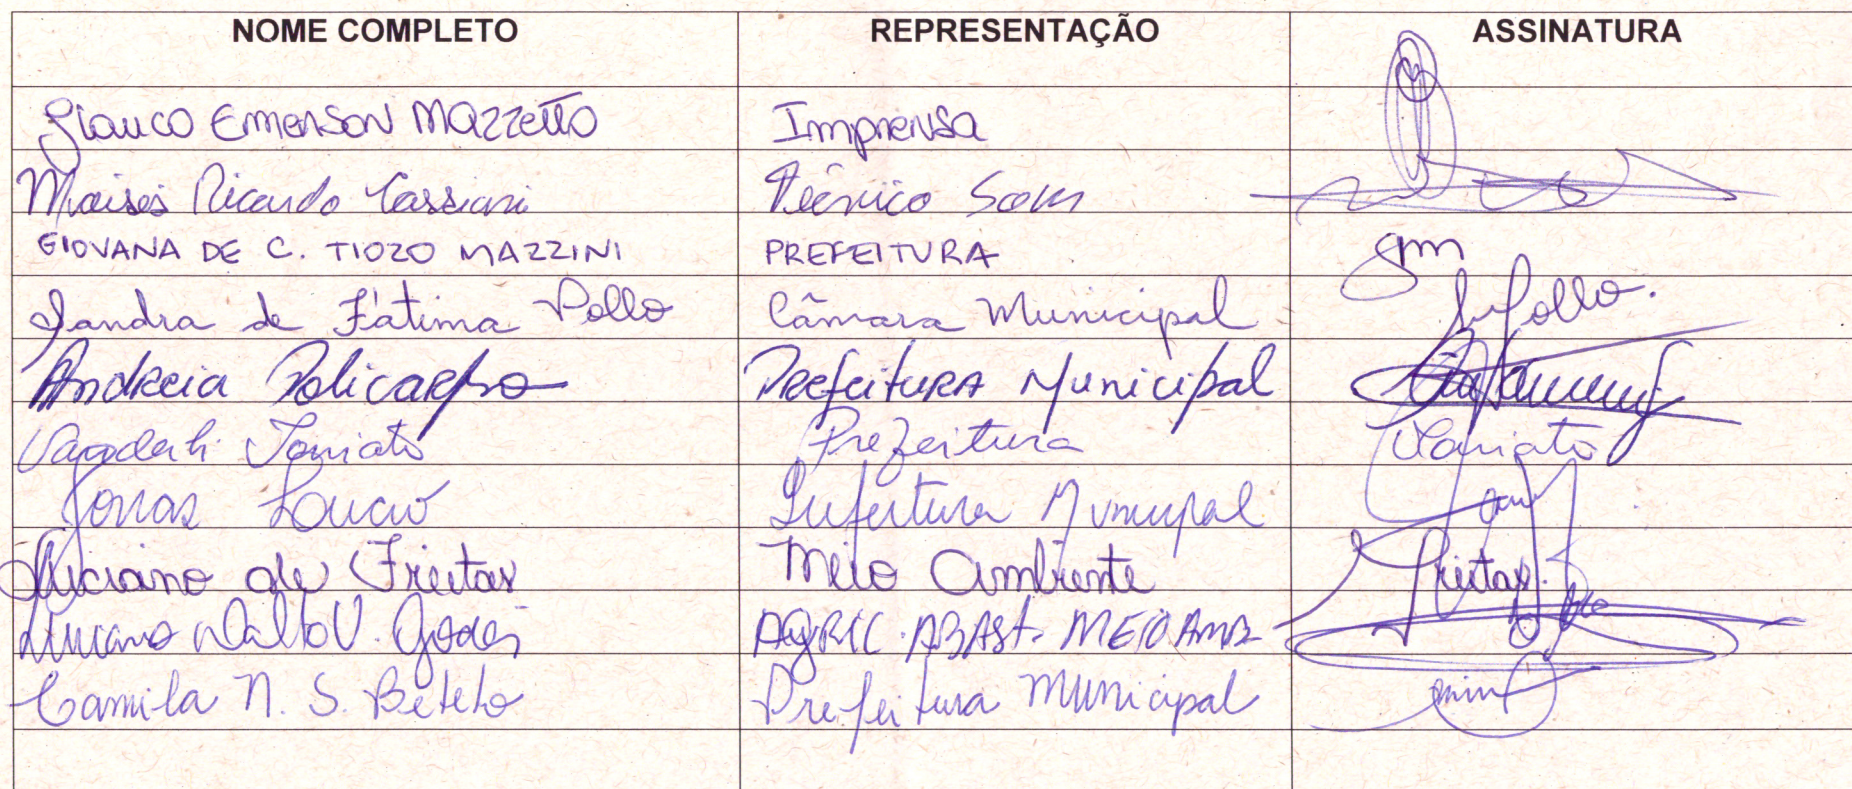 NOME COMPLETO REPRESENTAÇÃO ASSINATURA
Glauco Emerson Mazzetto Imprensa
Moisés Ricardo Cassiani Técnico Som
GIOVANA DE C. TIOZO MAZZINI PREFEITURA gm
Sandra de Fátima Pollo Câmara Municipal Pollo.
Andreia Policarpo Prefeitura Municipal
Vanderli Toniato Prefeitura Toniato
Jonas Loucio Prefeitura Municipal
Luciano de Freitas Meio Ambiente Freitas
Luciano Godoi AGRIC. ABAST. MEIO AMB
Camila N. S. Beteto Prefeitura Municipal